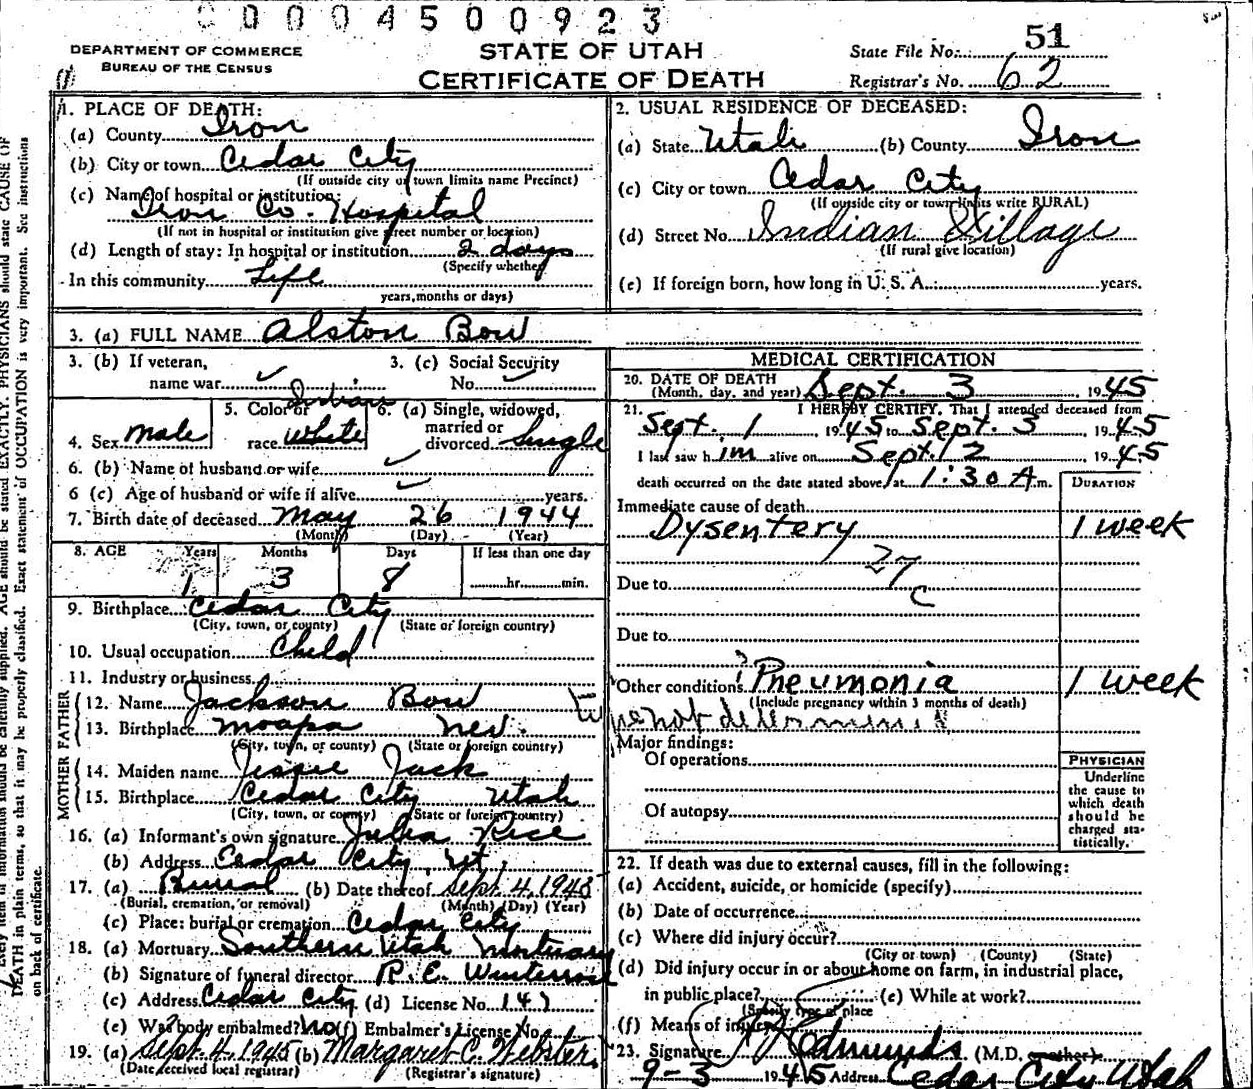 0 0 0 4 5 0 0 9 2 3
DEPARTMENT OF COMMERCE
BUREAU OF THE CENSUS
STATE OF UTAH
CERTIFICATE OF DEATH
State File No. 51
Registrar's No. 62
1. PLACE OF DEATH:
(a) County Iron
(b) City or town Cedar City
(If outside city or town limits name Precinct)
(c) Name of hospital or institution:
Iron Co. Hospital
(If not in hospital or institution give street number or location)
(d) Length of stay: In hospital or institution 2 days
(Specify whether
In this community Life
years, months or days)
2. USUAL RESIDENCE OF DECEASED:
(a) State Utah (b) County Iron
(c) City or town Cedar City
(If outside city or town limits write RURAL)
(d) Street No. Indian Village
(If rural give location)
(e) If foreign born, how long in U. S. A.: years.
3. (a) FULL NAME Alston Bow
3. (b) If veteran,
name war
3. (c) Social Security
No.
4. Sex male
5. Color or Indian
race White
6. (a) Single, widowed,
married or
divorced Single
6. (b) Name of husband or wife
6 (c) Age of husband or wife if alive years.
7. Birth date of deceased May 26 1944
(Month) (Day) (Year)
8. AGE Years Months Days If less than one day
1 3 8 hr. min.
9. Birthplace Cedar City
(City, town, or county) (State or foreign country)
10. Usual occupation Child
11. Industry or business
FATHER
12. Name Jackson Bow
13. Birthplace Moapa Nev.
(City, town, or county) (State or foreign country)
MOTHER
14. Maiden name Jessie Jack
15. Birthplace Cedar City Utah
(City, town, or county) (State or foreign country)
16. (a) Informant's own signature Julia Rice
(b) Address Cedar City, Ut.
17. (a) Burial (b) Date thereof Sept. 4, 1945
(Burial, cremation, or removal) (Month) (Day) (Year)
(c) Place: burial or cremation Cedar City
18. (a) Mortuary Southern Utah Mortuary
(b) Signature of funeral director R. E.
(c) Address Cedar City (d) License No. 147
(e) Was body embalmed? No (f) Embalmer's License No.
19. (a) Sept. 4, 1945 (b) Margaret C. Webster
(Date received local registrar) (Registrar's signature)
MEDICAL CERTIFICATION
20. DATE OF DEATH
(Month, day, and year) Sept. 3, 1945
21. I HEREBY CERTIFY, That I attended deceased from
Sept. 1 1945 to Sept. 3 1945
I last saw him alive on Sept. 2 1945
death occurred on the date stated above, at 1:30 A.m.
DURATION
Immediate cause of death
Dysentery 1 week
27
c
Due to
Due to
Other conditions ? Pneumonia 1 week
(Include pregnancy within 3 months of death)
Type not determined
Major findings:
Of operations
Of autopsy
PHYSICIAN
Underline
the cause to
which death
should be
charged sta-
tistically.
22. If death was due to external causes, fill in the following:
(a) Accident, suicide, or homicide (specify)
(b) Date of occurrence
(c) Where did injury occur?
(City or town) (County) (State)
(d) Did injury occur in or about home on farm, in industrial place,
in public place? (e) While at work?
(Specify type of place
(f) Means of injury
23. Signature Edmunds (M.D. or other)
9-3 1945 Address Cedar City Utah
Every item of information should be carefully supplied. AGE should be stated EXACTLY. PHYSICIANS should state CAUSE OF
DEATH in plain terms, so that it may be properly classified. Exact statement of OCCUPATION is very important. See instructions
on back of certificate.